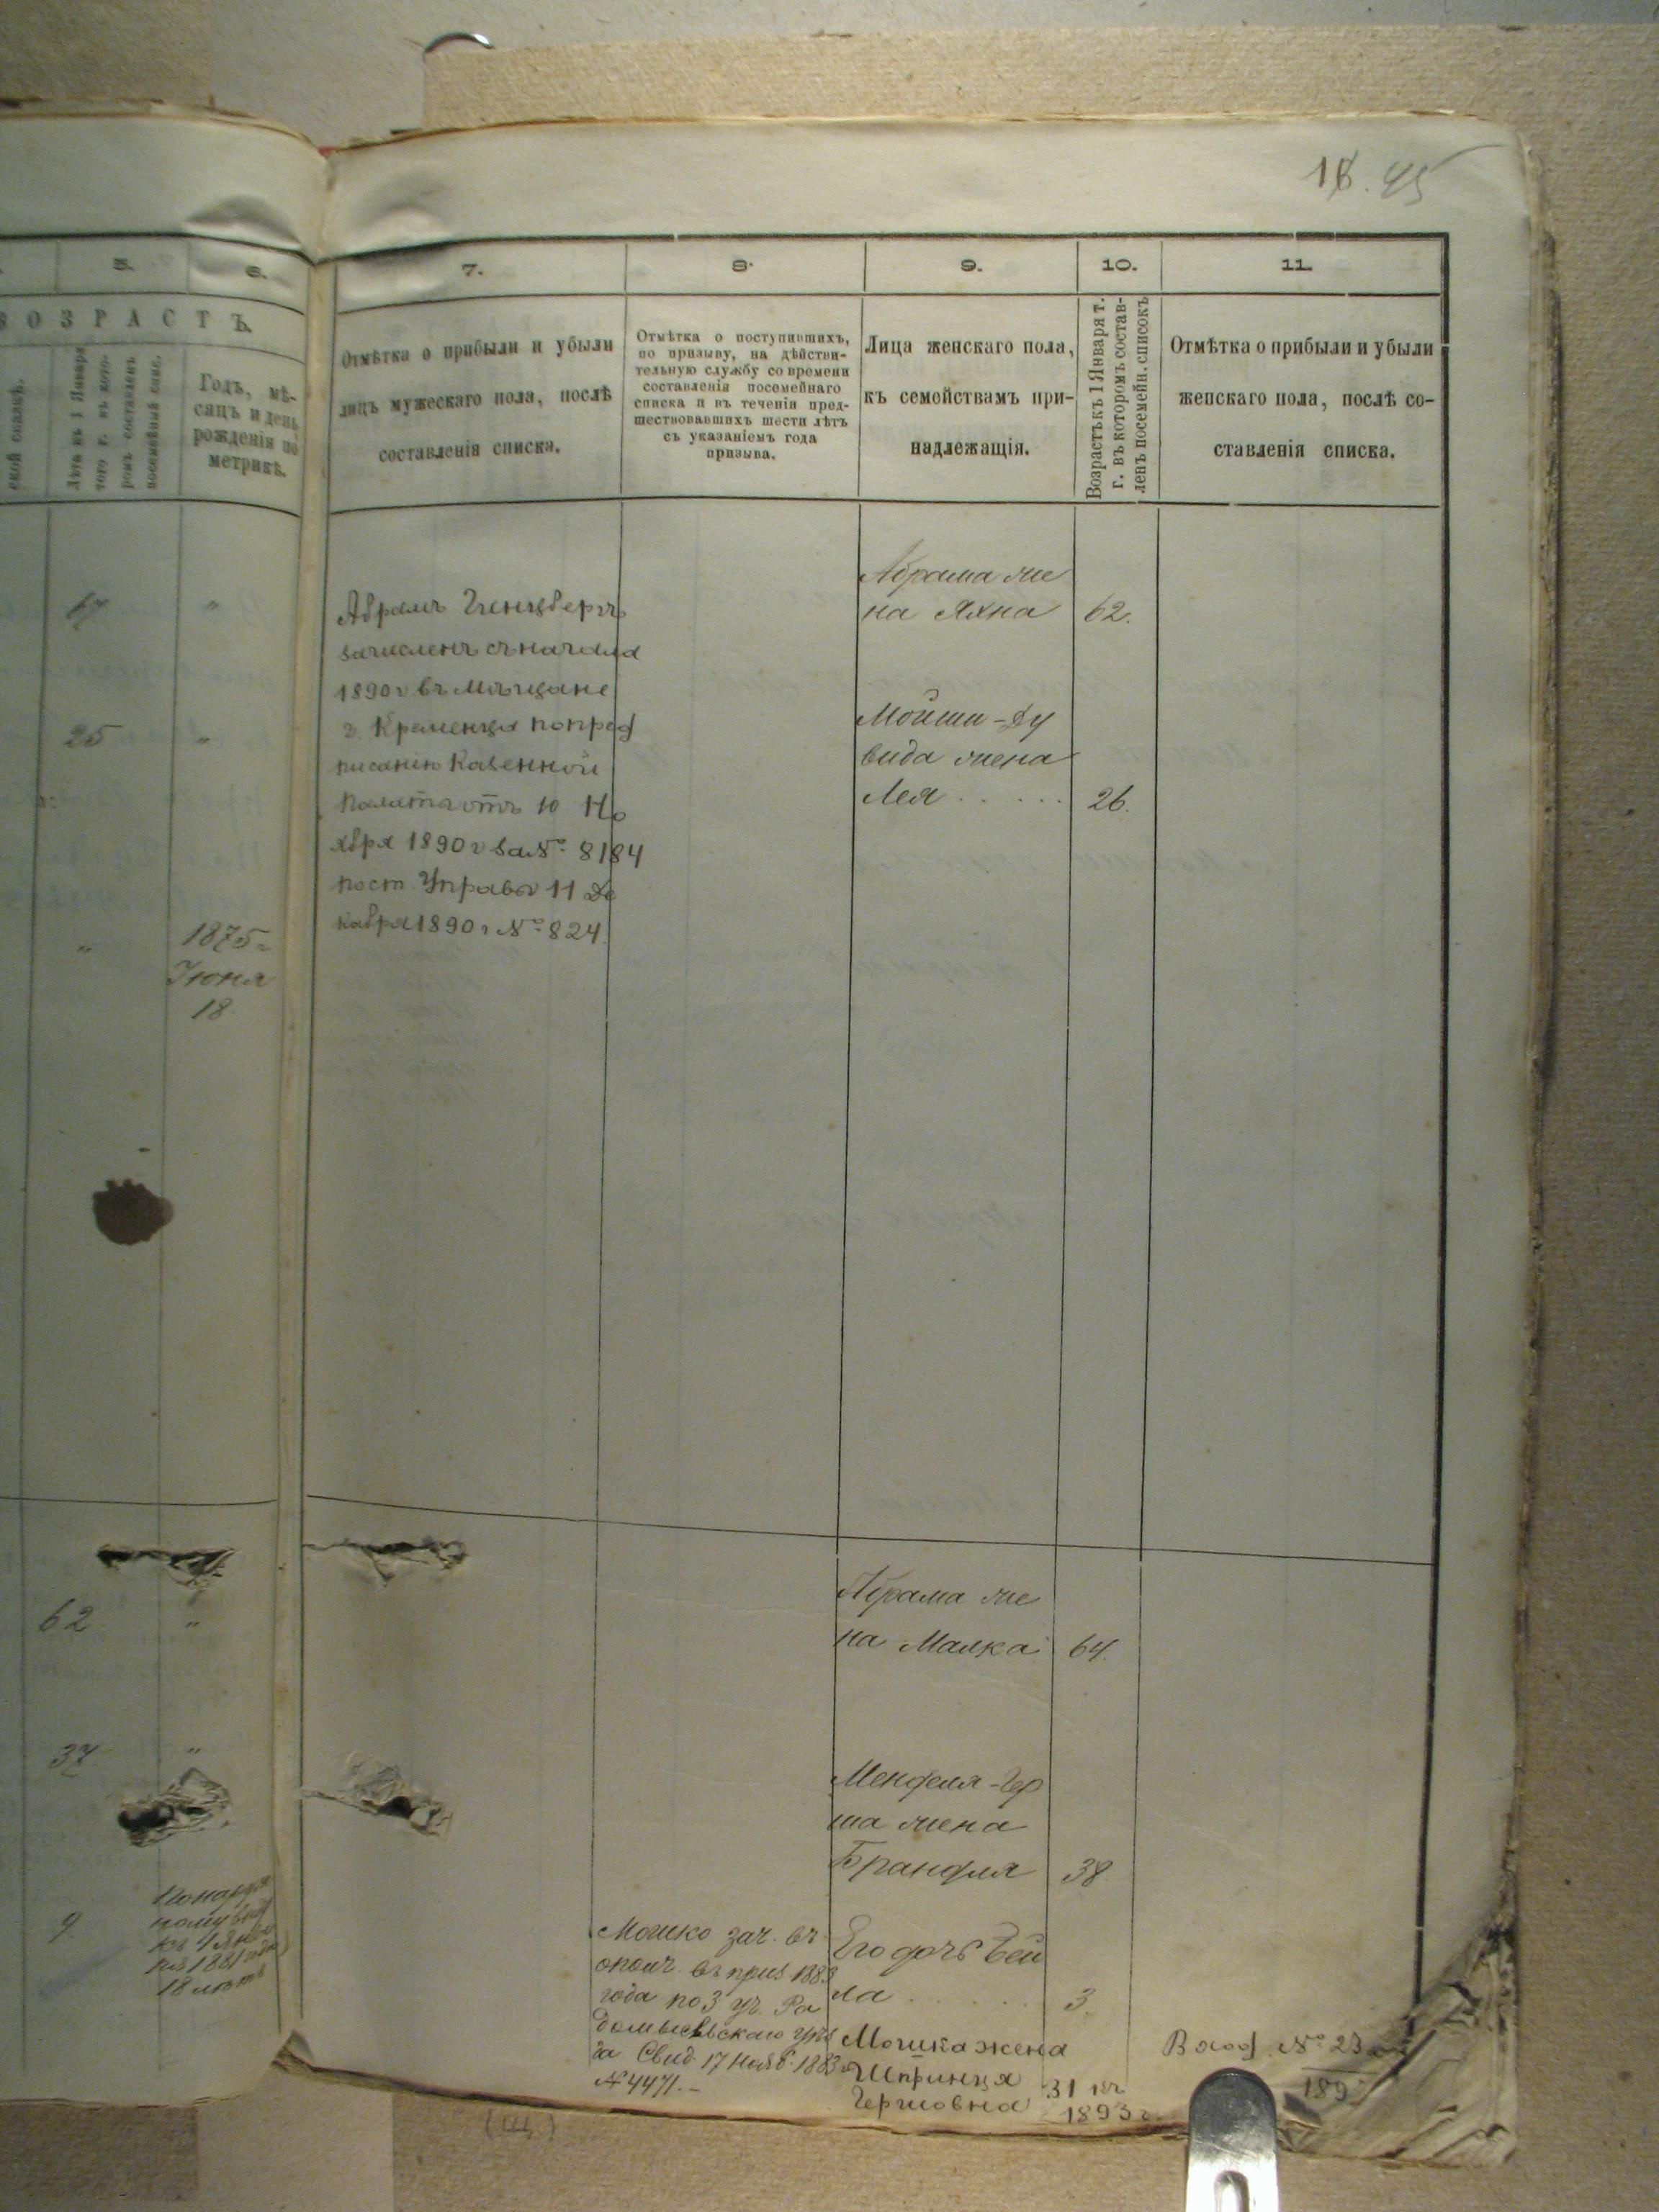 45
5.
6.
7.
8.
9.
10.
11.
ВОЗРАСТЪ.
Годъ, мѣ-
сяцъ и день
рожденія по
метрикѣ.
Отмѣтка о прибыли и убыли
лицъ мужескаго пола, послѣ
составленія списка.
Отмѣтка о поступившихъ,
по призыву, на дѣйстви-
тельную службу со времени
составленія посемейнаго
списка и въ теченіи пред-
шествовавшихъ шести лѣтъ
съ указаніемъ года
призыва.
Лица женскаго пола,
къ семействамъ при-
надлежащія.
Возрастъ къ 1 Января т.
г. въ которомъ состав-
ленъ посемейн. списокъ
Отмѣтка о прибыли и убыли
женскаго пола, послѣ со-
ставленія списка.
67 "
25 "
" 1875 г
Іюня
18
Абрамъ Гинцбергъ
зачисленъ съ начала
1890 г въ Мѣщане
г. Кременца по пред
писанію Казенной
Палаты отъ 10 Но
ября 1890 г за № 8184
пост. Управы 11 Де
кабря 1890 г № 824.
Абрама же
на Яхна 62.
Мойши-Ду
вида жена
Лея . . . . . 26.
62 "
37 "
9
18 лѣтъ
Абрама же
на Малка 64.
Менделя-Гер
ша жена
Брандля 38
Его дочь Бей
ла . . . . . 3.
Мошко зач. въ
ополч. въ приз 1883
года по 3 уч. Ра
домысльскаго уѣз
за Свид. 17 Нояб. 1883 г
№ 4471.-
Мошка жена
Шпринця
Гершовна 31 въ
1893 г.
Вход. № 23
189